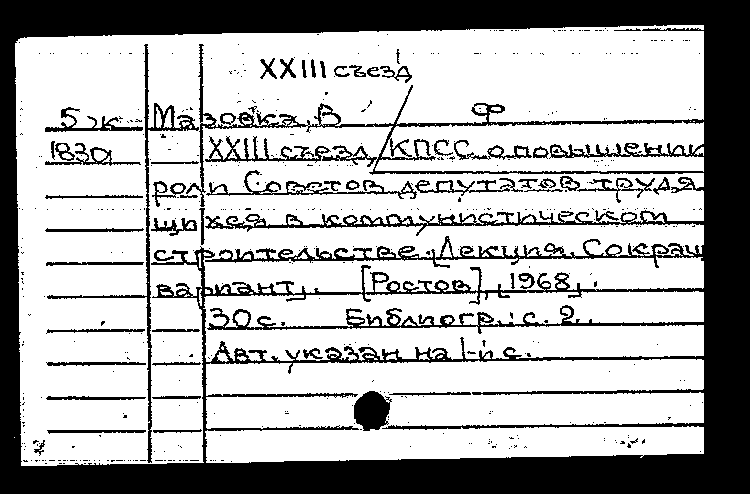 XXIII съезд
5эк Мазовка, В Ф
1830 XXIII съезд КПСС о повышении
роли Советов депутатов трудя
щихся в коммунистическом
строительстве. [Лекция. Сокращ
вариант]. [Ростов], [1968].
30 с. Библиогр.: с. 2.
Авт. указан на 1-й с.